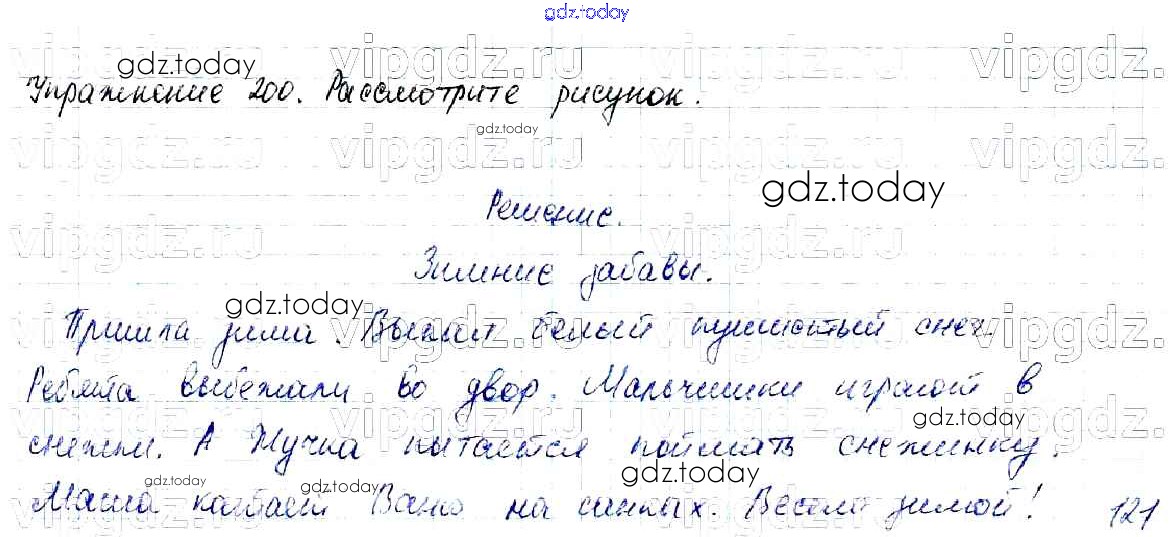 gdz.today
Упражнение 200. Рассмотрите рисунок.
Решение.
Зимние забавы.
Пришла зима. Выпал белый пушистый снег.
Ребята выбежали во двор. Мальчишки играют в
снежки. А Жучка пытается поймать снежинку.
Маша катает Ваню на санках. Весело зимой!
121
gdz.today
gdz.today
gdz.today
gdz.today
gdz.today
gdz.today
gdz.today
vipgdz.ru
vipgdz.ru
vipgdz.ru
vipgdz.ru